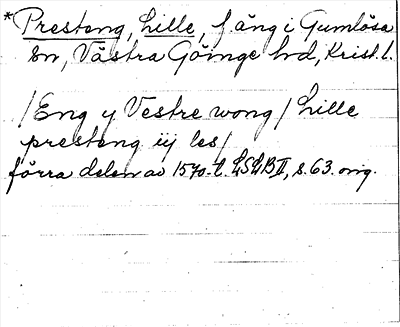 *Presteng, Lille, f. äng i Gumlösa
sn, Västra Göinge hd, Krist. l.
/Eng y Vestre wong/ Lille
presteng iij les/
förra delen av 1570-t. LSLB II, s. 63. orig.